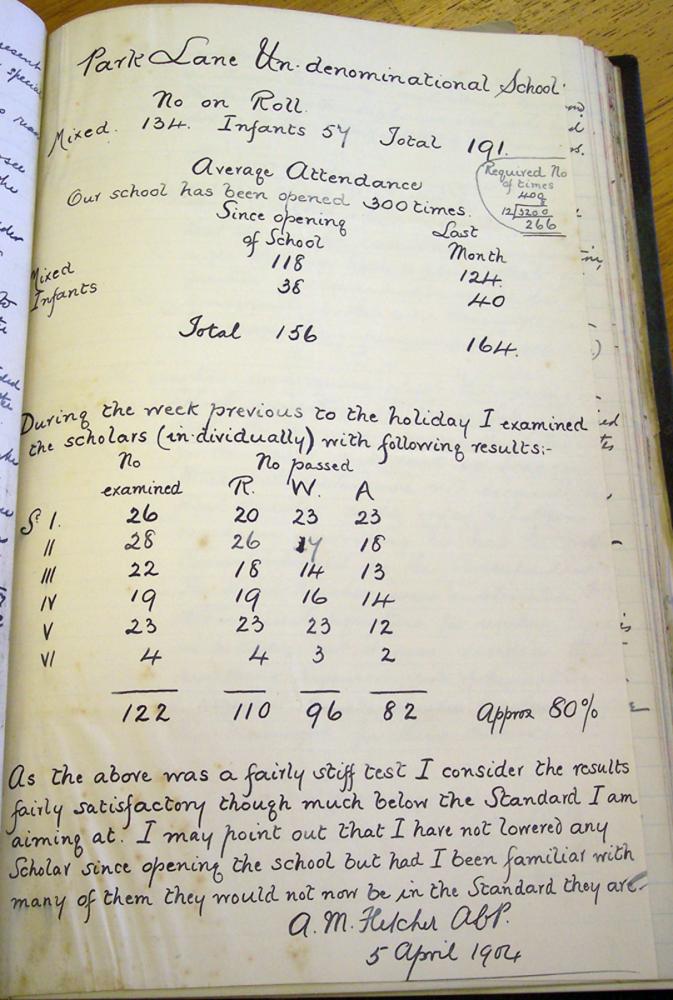 Park Lane Un-denominational School.
No on Roll.
Mixed. 134. Infants 57 Total 191.
Average Attendance
Our school has been opened 300 times.
Required No
of times
400
12/3200
266
Since opening
of School
Last
Month
Mixed 118 124.
Infants 38 40
Total 156 164.
During the week previous to the holiday I examined
the scholars (in-dividually) with following results:-
No No passed
examined R. W. A
St I. 26 20 23 23
II 28 26 17 18
III 22 18 14 13
IV 19 19 16 14
V 23 23 23 12
VI 4 4 3 2
122 110 96 82 Approx 80%
As the above was a fairly stiff test I consider the results
fairly satisfactory though much below the Standard I am
aiming at. I may point out that I have not lowered any
Scholar since opening the school but had I been familiar with
many of them they would not now be in the Standard they are.
A. M. Fletcher
5 April 1904